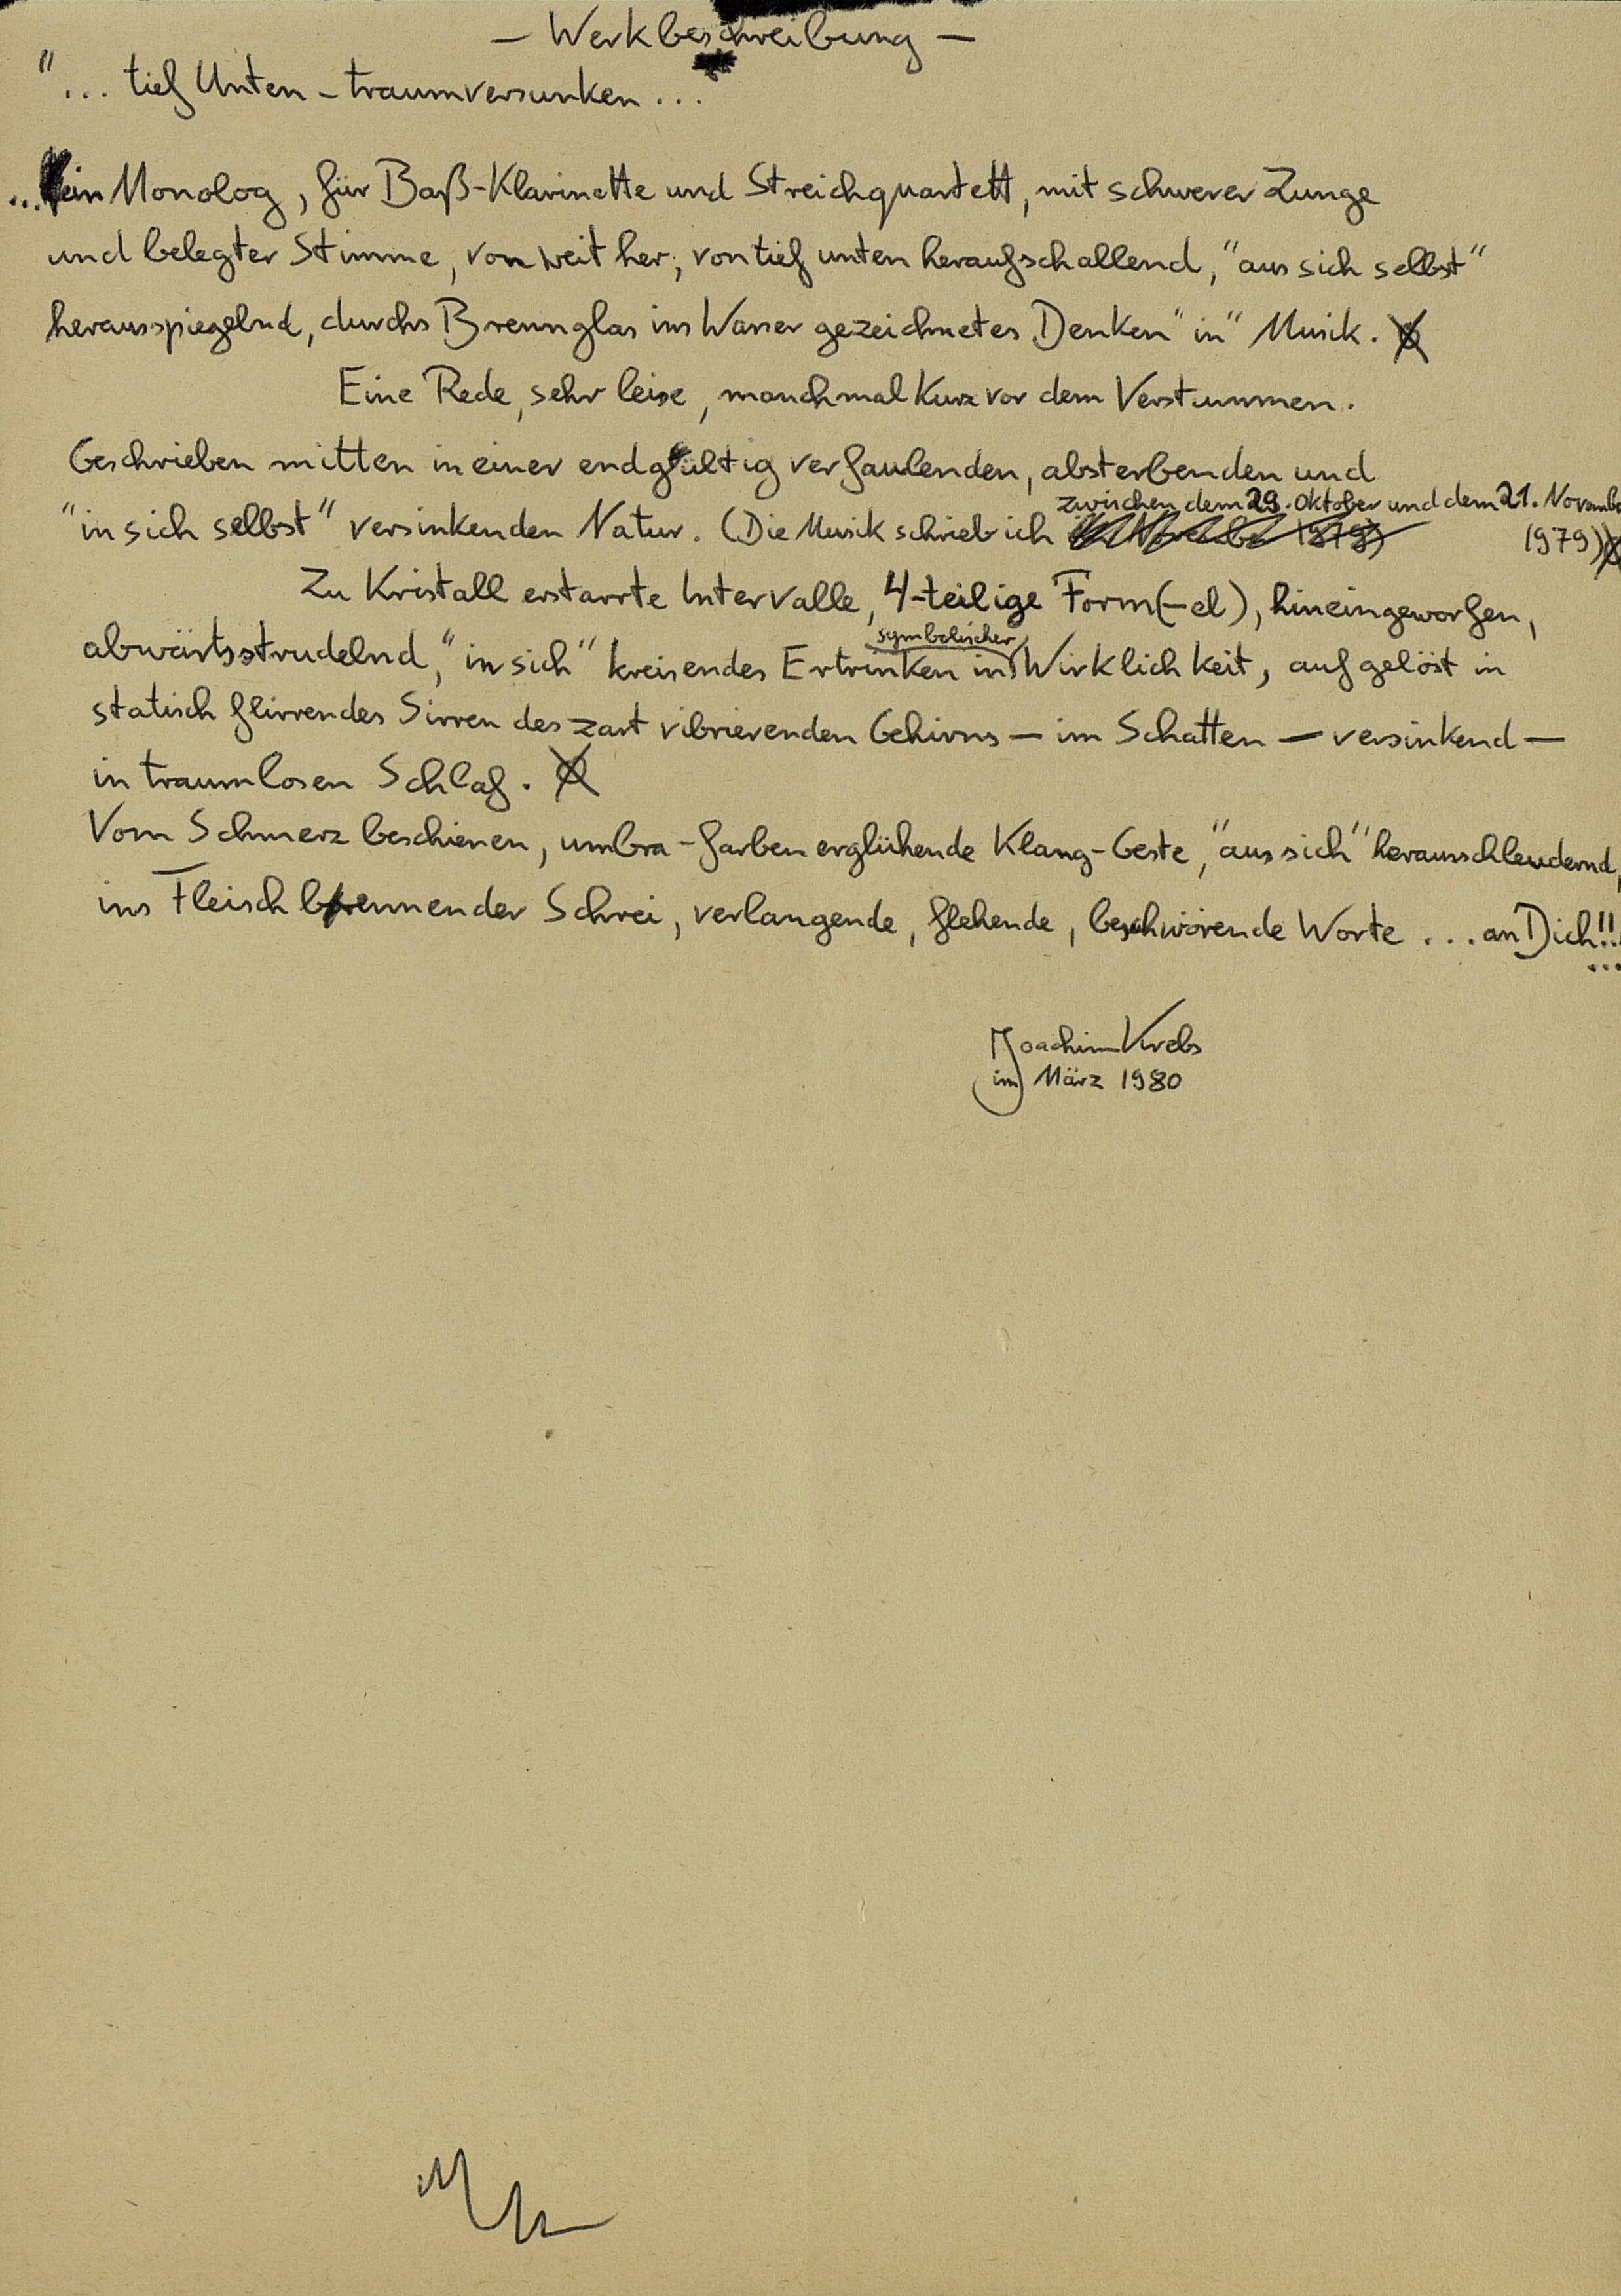 — Werkbeschreibung —
"... tief Unten – traumversunken ..."
...ein Monolog, für Baß-Klarinette und Streichquartett, mit schwerer Zunge
und belegter Stimme, von weit her, von tief unten heraufschallend, "aus sich selbst"
herausspiegelnd, durchs Brennglas ins Wasser gezeichnetes Denken "in" Musik.
Eine Rede, sehr leise, manchmal kurz vor dem Verstummen.
Geschrieben mitten in einer endgültig verfaulenden, absterbenden und
zwischen dem 29. Oktober und dem 21. Novembe
"in sich selbst" versinkenden Natur. (Die Musik schrieb ich 1979)
Zu Kristall erstarrte Intervalle, 4-teilige Form(-el), hineingeworfen,
symbolischer
abwärtsstrudelnd, "in sich" kreisendes Ertrinken in Wirklichkeit, aufgelöst in
statisch flirrendes Sirren des zart vibrierenden Gehirns — im Schatten — versinkend —
in traumlosen Schlaf.
Vom Schmerz beschienen, umbra-farben erglühende Klang-Geste, "aus sich" herausschleudernd,
ins Fleisch brennender Schrei, verlangende, flehende, beschwörende Worte ... an Dich!!
...
Joachim Krebs
im März 1980